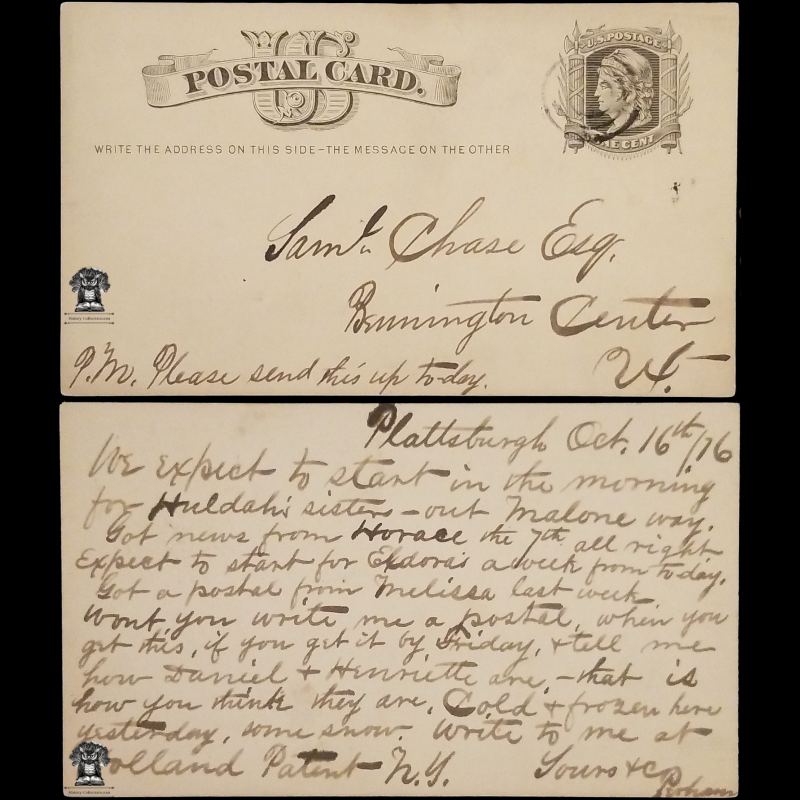 US
POSTAL CARD.
U.S. POSTAGE
ONE CENT
WRITE THE ADDRESS ON THIS SIDE-THE MESSAGE ON THE OTHER
Saml. Chase Esq.
Bennington Center
Vt.
P.M. Please send this up to-day.
Plattsburgh Oct. 16th/76
We expect to start in the morning
for Huldah's sisters - out Malone way.
Got news from Horace the 7th all right
Expect to start for Eldora's a week from to-day.
Got a postal from Melissa last week
Wont you write me a postal, when you
get this, if you get it by Friday, & tell me
how Daniel & Henriette are, - that is
how you think they are. Cold & frozen here
yesterday, some snow. Write to me at
Holland Patent N.Y. Yours &c